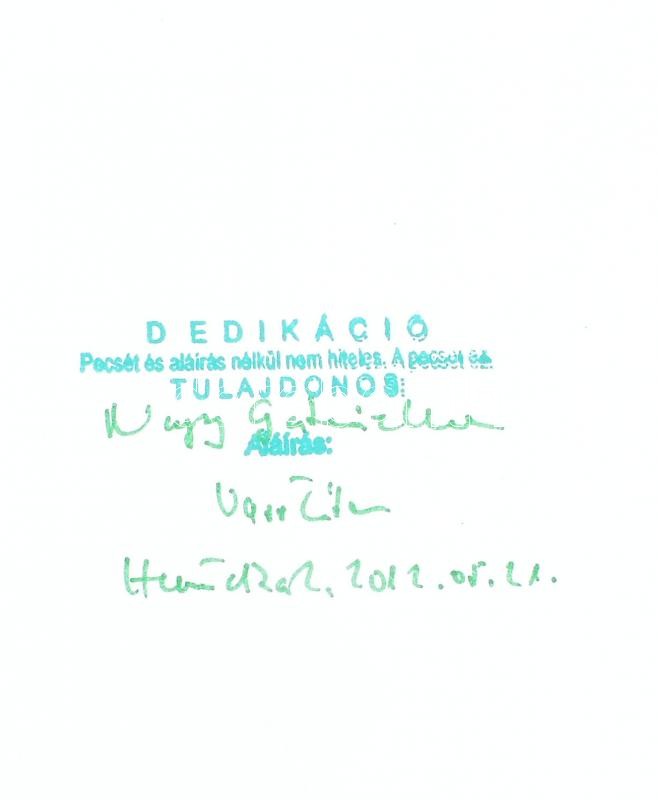 DEDIKÁCIÓ
Pecsét és aláírás nélkül nem hiteles. A pecsét és
TULAJDONOS:
Nagy Gabriella
Aláírás:
Vass Zita
2012.05.21.